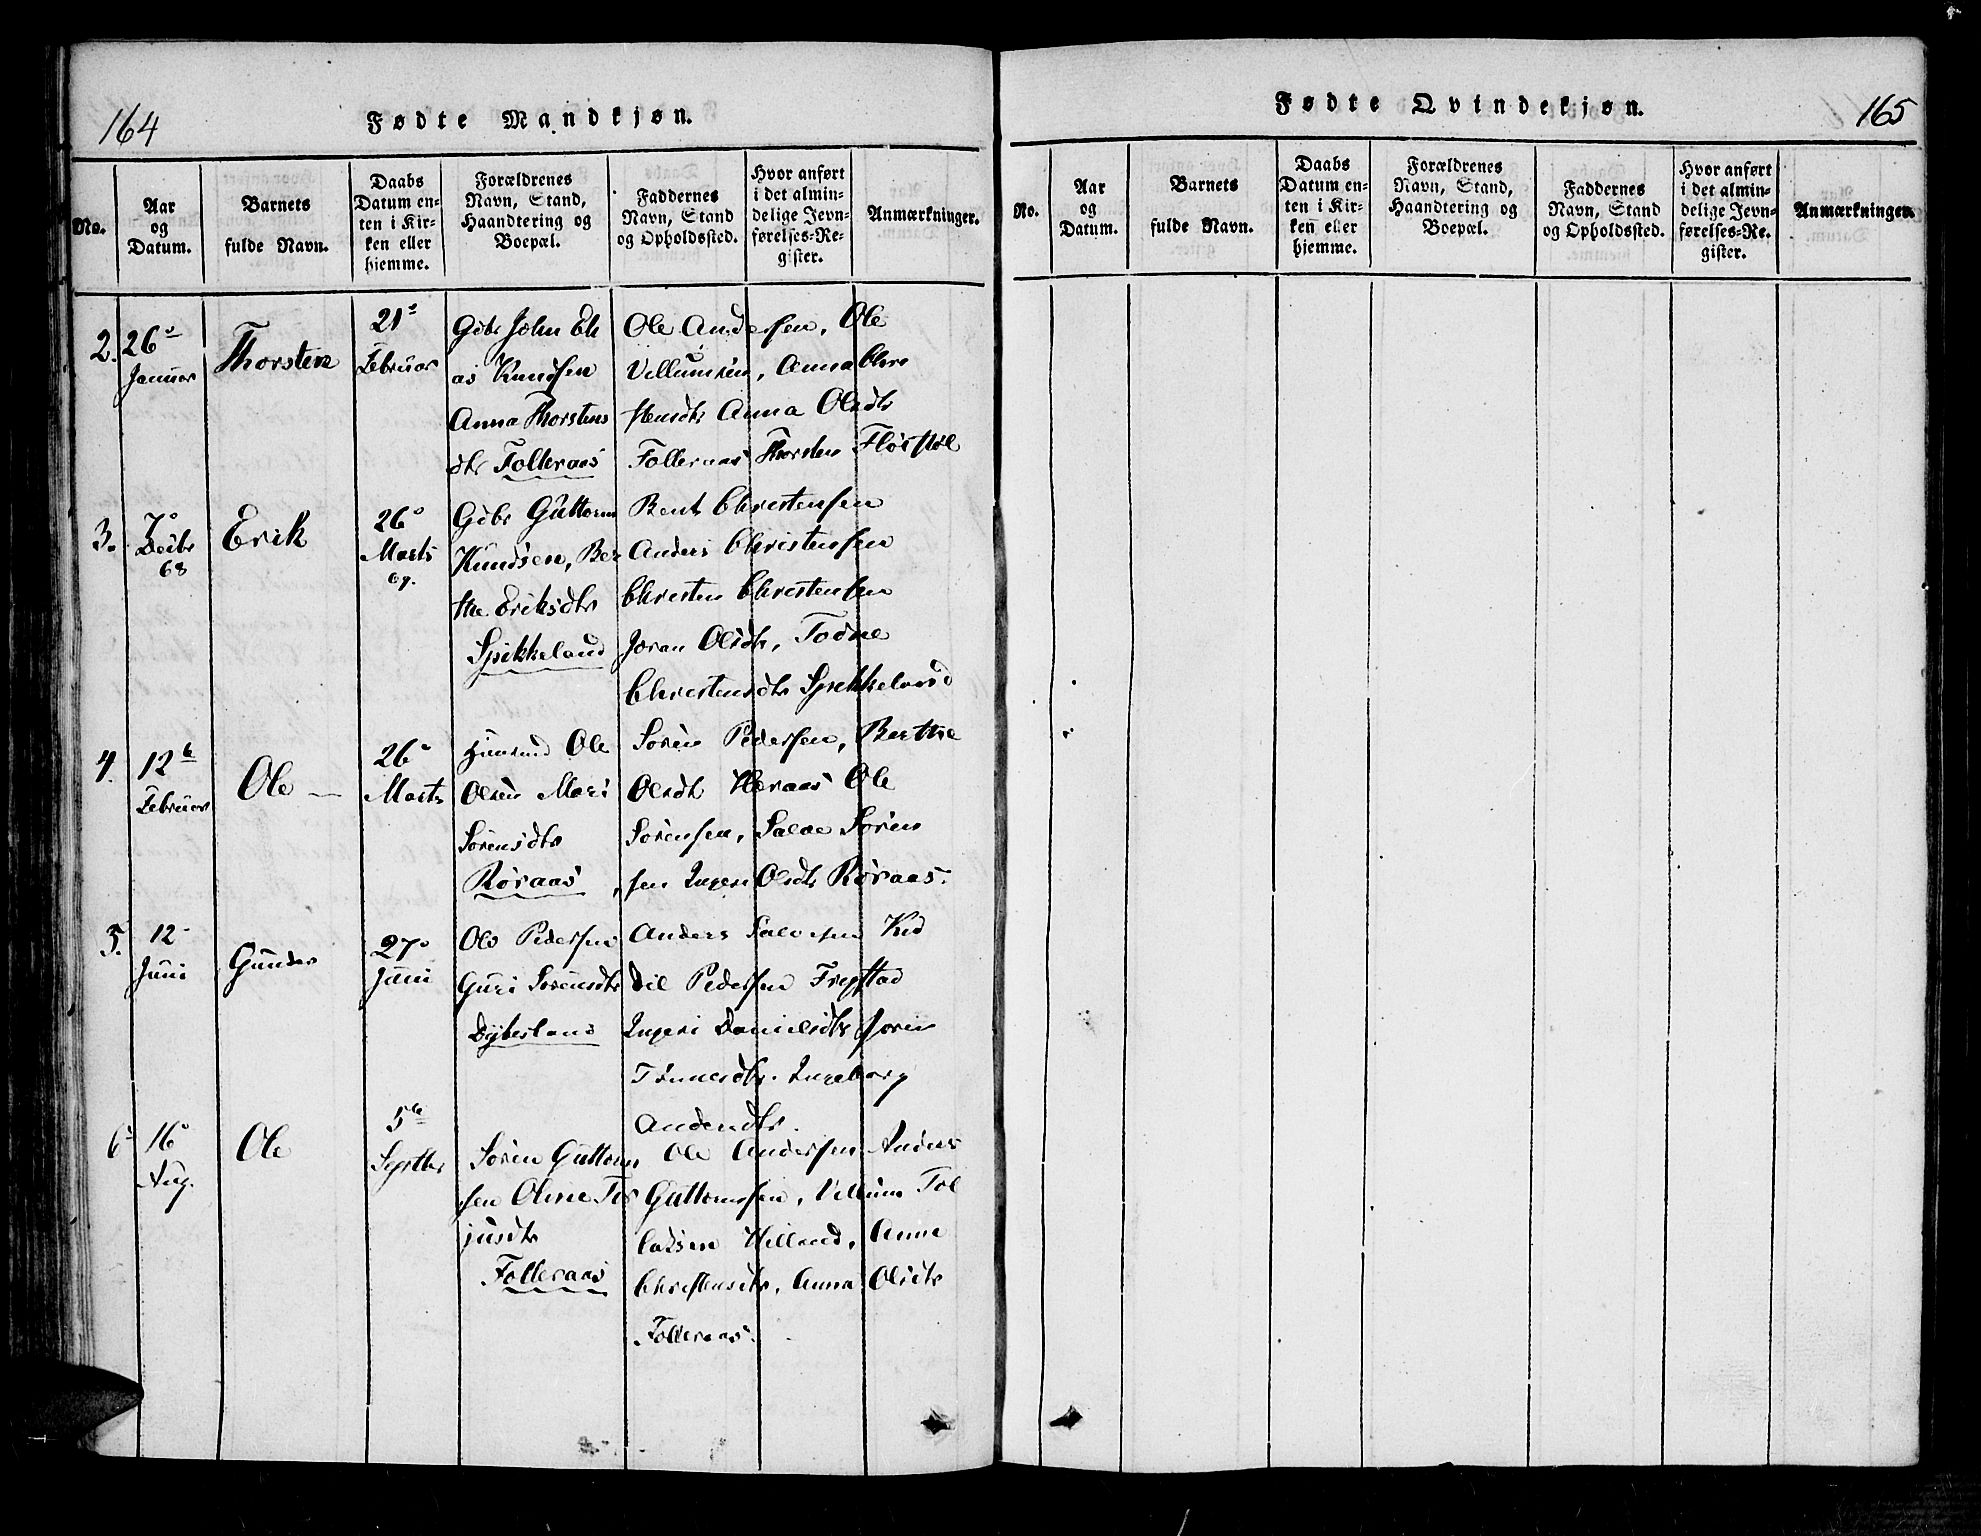 164
Fødte Mandkjøn.
No.
Aar
og
Datum.
Barnets
fulde Navn.
Daabs
Datum en-
ten i Kir-
ken eller
hjemme.
Forældrenes
Navn, Stand,
Haandtering og
Boepæl.
Faddernes
Navn, Stand
og Opholdssted.
Hvor anført
i det almin-
delige Jevn-
førelses-Re-
gister.
Anmærkninger.
2.
26de
Januar
Thorsten
21de
Februar
Gbr John Eli
as Knudsen
Anna Thorstens
dtr Folleraas
Ole Andersen, Ole
Villumsen, Anna Chri
stensdtr Anna Olsdtr
Folleraas Thorsten
3.
7de
Decbr
68
Erik
26de
Marts
69.
Gbr Guttorm
Knudsen, Ber
the Eriksdtr
Spikkeland
Bent Christensen
Anders Christensen
Christen Christensen
Joran Olsdtr, Todne
Christensdtr Spikkeland
4.
12te
Februar
Ole
26de
Marts
Ole
Olsen Mari
Sørensdtr
Røraas
Søren Pedersen, Berthe
Olsdtr Heraas Ole
Sørensen, Salve Søren
sen Ingeri Olsdtr Røraas.
5.
12
Juni
Gunder
27de
Juni
Ole Pedersen
Guri Sørensdtr
Dybesland
Anders Salvesen Kid
del Pedersen Frigstad
Ingeri Danielsdtr Joren
Ingeborg
Andersdtr.
6
16de
Aug.
Ole
5te
Septbr
Søren Guttorm
sen Olme Ter
jusdtr
Folleraas
Ole Andersen Anders
Guttormsen, Villum Tol
laksen Hilland, Anne
Christensdtr, Anna Olsdtr
Folleraas.
Fødte Qvindekjøn.
165
No.
Aar
og
Datum.
Barnets
fulde Navn.
Daabs
Datum en-
ten i Kir-
ken eller
hjemme.
Forældrenes
Navn, Stand,
Haandtering og
Boepæl.
Faddernes
Navn, Stand
og Opholdssted.
Hvor anført
i det almin-
delige Jevn-
førelses-Re-
gister.
Anmærkninger.